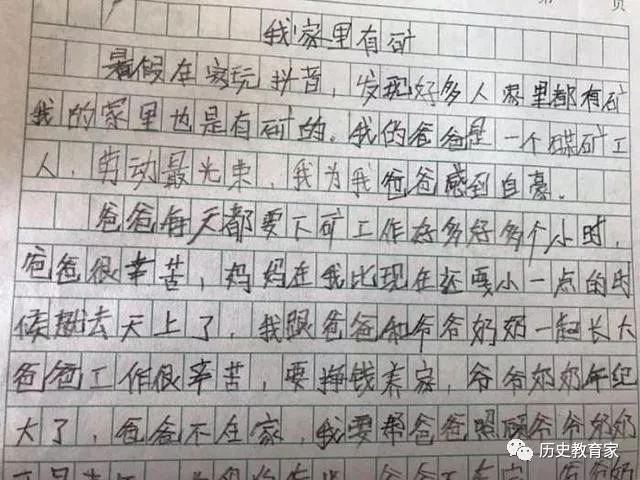 我家里有矿
暑假在家玩抖音，发现好多人家里都有矿
我的家里也是有矿的。我的爸爸是一个煤矿工
人，劳动最光荣，我为我爸爸感到自豪。
爸爸每天都要下矿工作好多好多个小时，
爸爸很辛苦，妈妈在我比现在还要小一点的时
候就去天上了，我跟爸爸和爷爷奶奶一起长大
爸爸工作很辛苦，要挣钱养家，爷爷奶奶年纪
大了，爸爸不在家，我要帮爸爸照顾爷爷奶奶
历史教育家
页